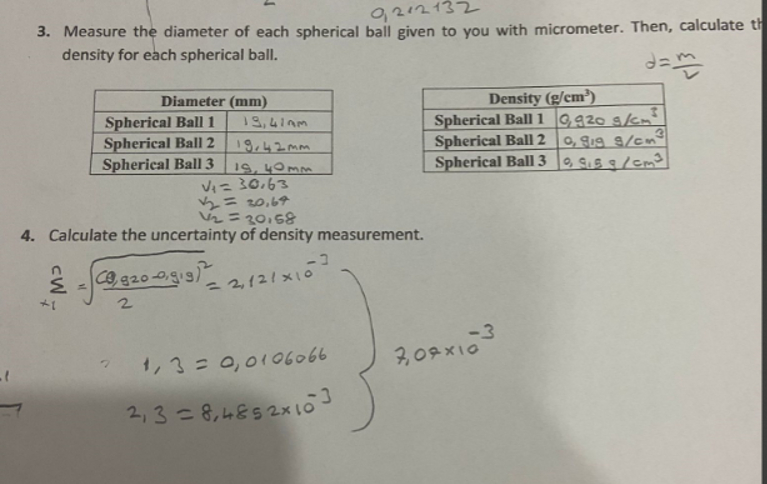 0,212132
3. Measure the diameter of each spherical ball given to you with micrometer. Then, calculate th
density for each spherical ball.
d = m/V
Diameter (mm)
Spherical Ball 1 19,41mm
Spherical Ball 2 19,42mm
Spherical Ball 3 19,40mm
Density (g/cm³)
Spherical Ball 1 0,920 g/cm³
Spherical Ball 2 0,919 g/cm³
Spherical Ball 3 g/cm³
V₁ = 30,63
V₂ =
V₂ = 30,58
4. Calculate the uncertainty of density measurement.
n Σ x1 = √(0,920-0,919)²/2 = 2,121×10⁻³
1,3 = 0,0106066
7,07×10⁻³
2,3 = 8,4852×10⁻³